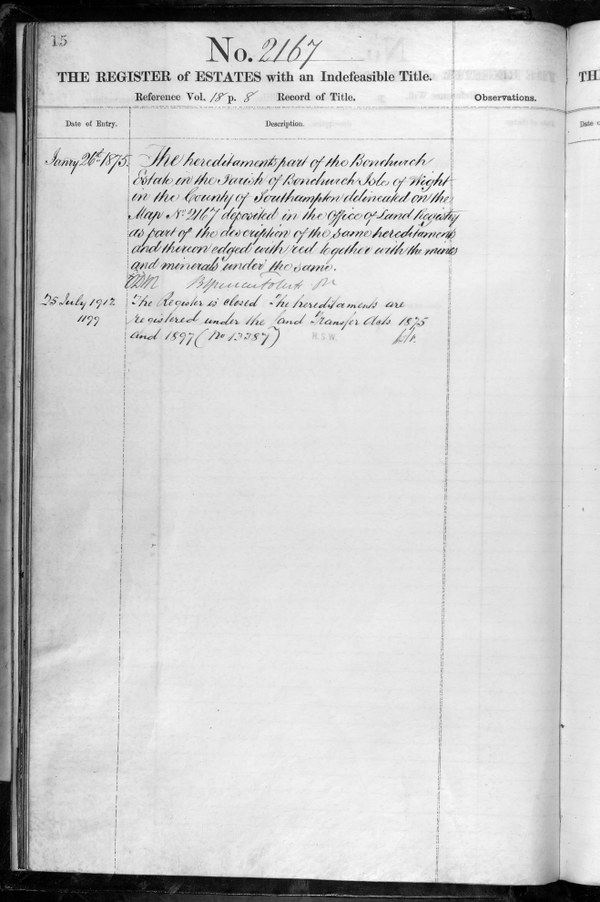 15
No. 2167
THE REGISTER of ESTATES with an Indefeasible Title.
Reference Vol. 18 p. 8 Record of Title.
Observations.
Date of Entry.
Description.
Janry 26th 1875.
The hereditaments part of the Bonchurch
Estate in the Parish of Bonchurch Isle of Wight
in the County of Southampton delineated on the
Map No. 2167 deposited in the Office of Land Registry
as part of the description of the same hereditaments
and thereon edged with red together with the mines
and minerals under the same.
25 July 1912
1199
The Register is closed The hereditaments are
registered under the Land Transfer Acts 1875
and 1897 (No 13287)
H.S.W.
TH
Date o